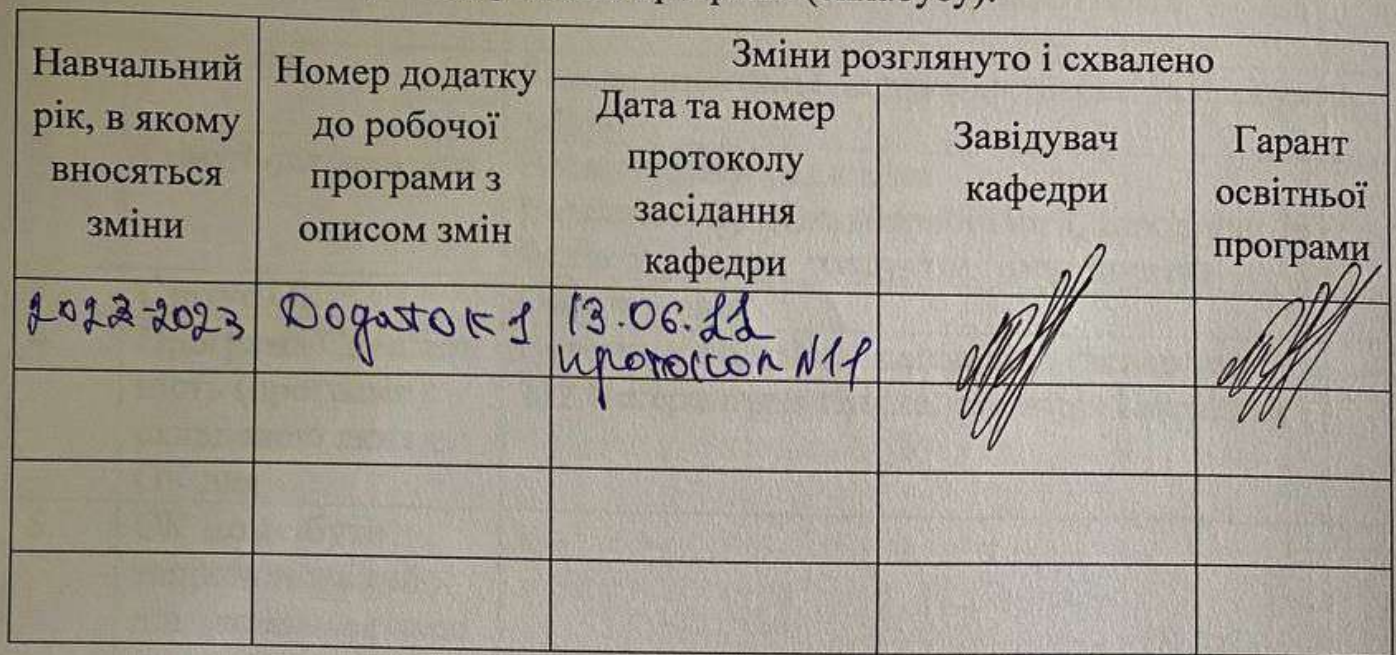 Навчальний
рік, в якому
вносяться
зміни
Номер додатку
до робочої
програми з
описом змін
Зміни розглянуто і схвалено
Дата та номер
протоколу
засідання
кафедри
Завідувач
кафедри
Гарант
освітньої
програми
2022-2023
Додаток 1
13.06.22
протокол N11